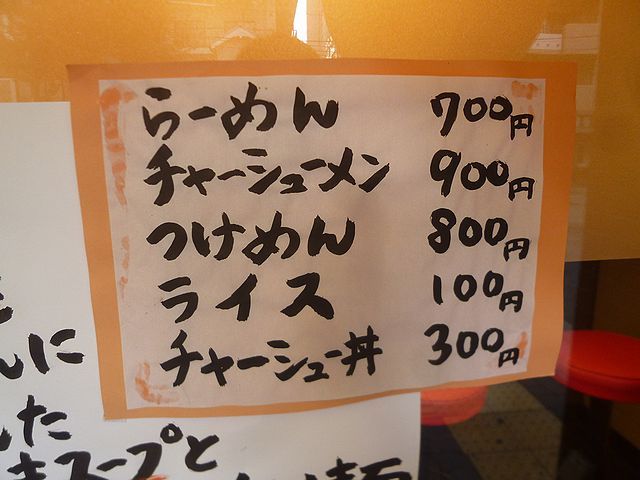 らーめん 700円
チャーシューメン 900円
つけめん 800円
ライス 100円
チャーシュー丼 300円
んに
した
スープと